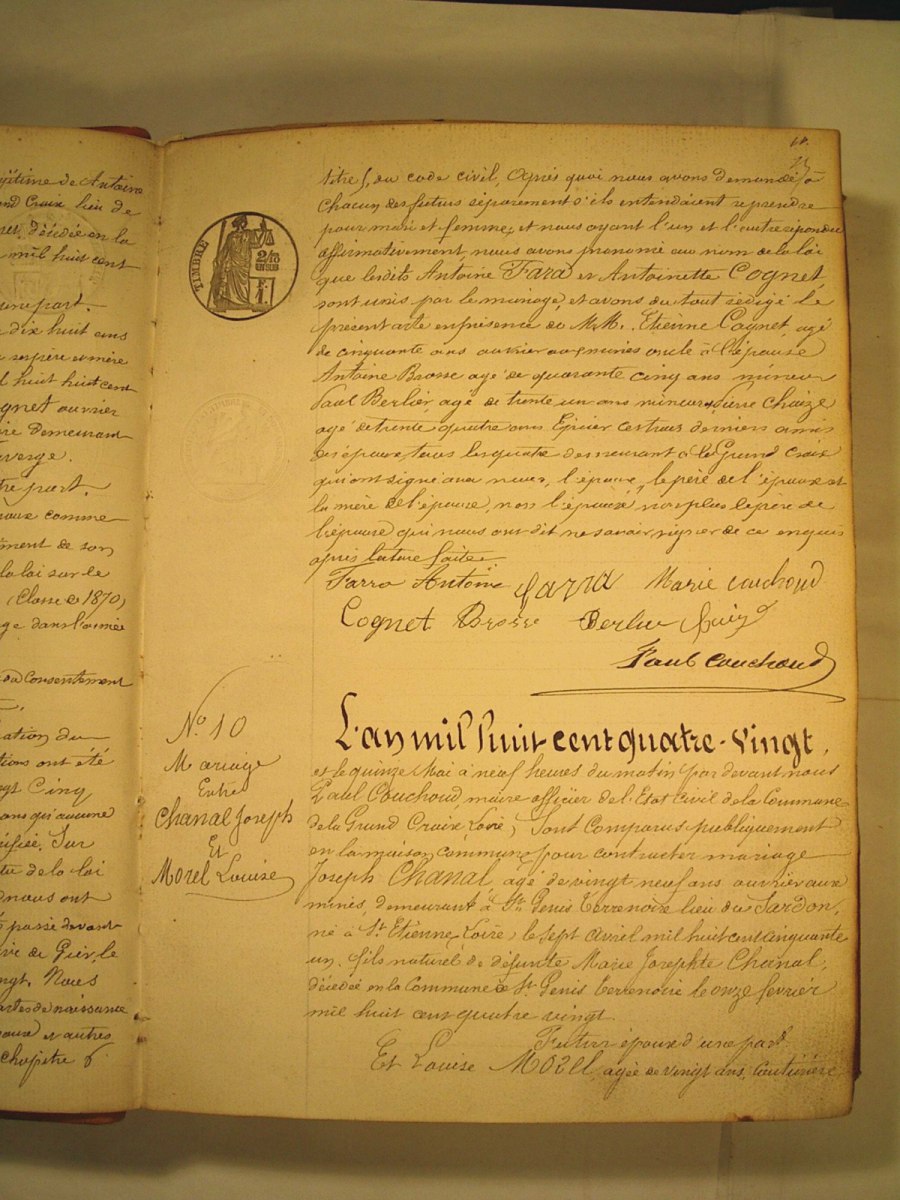 gitime de Antoine
nd Croix lieu de
res, décédée en la
mil huit cent
une part.
dix huit ans
père et mère
l huit huit cent
gnet ouvrier
ire demeurant
verge.
tre part.
comme
ment de son
la loi sur le
(Classe de 1870)
ge dans l'armée
Consentement
ation du
tions ont été
gt Cinq
ans qu'aucune
ifiée, Sur
te de la loi
nous ont
passé devant
ive de Gier, le
ngt. Nous
actes de naissance
et autres
Chapitre 6
TIMBRE
titre 5, du code civil, Après quoi nous avons demandé à
chacun des futurs séparement s'ils entendaient se prendre
pour mari et femme, et nous ayant l'un et l'autre répondu
affirmativement, nous avons prononcé au nom de la loi
que lesdits Antoine Fara et Antoinette Cognet,
sont unis par le mariage, et avons du tout rédigé le
présent acte en présence de MM. Etienne Cognet, agé
de cinquante ans ouvrier aux mines oncle à l'épouse
Antoine Brosse agé de quarante cinq ans mineur
Paul Berlier, agé de trente un ans mineur Pierre Chaize
agé de trente quatre ans Epicier ces trois derniers amis
des époux tous les quatre demeurant à la Grand Croix
qui ont signé avec nous, l'époux, le père de l'époux et
la mère de l'épouse, non l'épouse non plus le père de
l'épouse qui nous ont dit ne savoir signer de ce enquis
après lecture faite.
Farra Antoine Farra Marie Couchoud
Cognet Brosse Berlier
Paul Couchoud
No 10
Mariage
Entre
Chanal Joseph
Et
Morel Louise
L'an mil huit cent quatre-vingt,
et le quinze Mai à neuf heures du matin par devant nous
Paul Couchoud, maire officier de l'Etat Civil de la Commune
de la Grand Croix Loire, Sont Comparus publiquement
en la maison commune pour contracter mariage
Joseph Chanal, agé de vingt neuf ans ouvrier aux
mines, demeurant à St Genis Terrenoire lieu du Sardon,
né à St Etienne Loire, le sept avril mil huit cent cinquante
un, fils naturel de défunte Marie Josephte Chanal,
décédée en la Commune de St Genis Terrenoire le onze février
mil huit cent quatre vingt
Futur époux d'une part
Et Louise Morel agée de vingt ans, Couturière